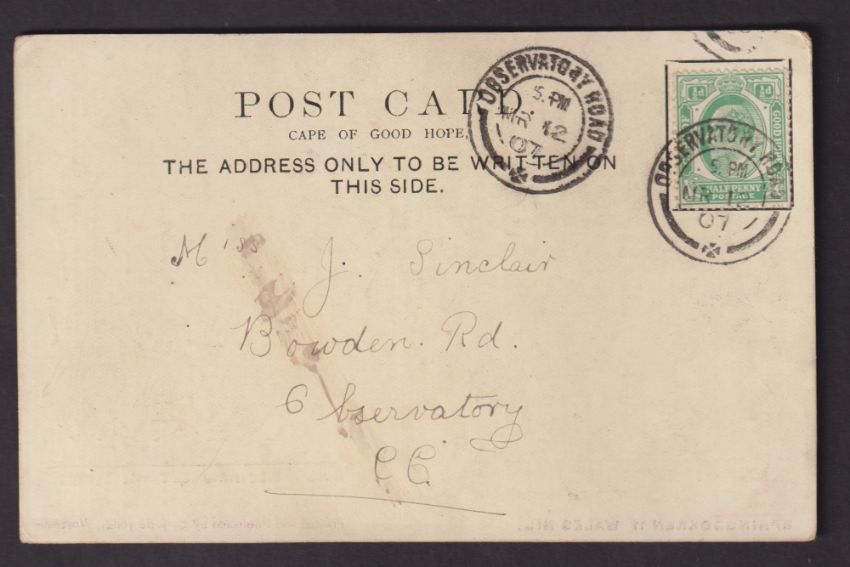 POST CARD
CAPE OF GOOD HOPE,
THE ADDRESS ONLY TO BE WRITTEN ON
THIS SIDE.
OBSERVATORY ROAD
5. PM
MR 12
07
½d ½d
GOOD HOPE
HALFPENNY
POSTAGE
OBSERVATORY ROAD
5 PM
MR 12
07
Miss J. Sinclair
Bowden. Rd.
Observatory
C.C.
SPRINGBOKKEN 11 WALES NIL.